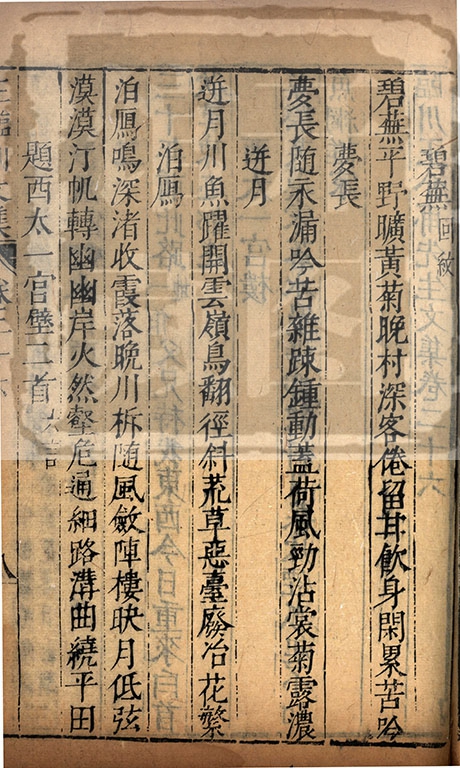 碧蕪回紋
碧蕪平野曠黃菊晚村深客倦留甘飲身閑累苦吟
夢長
夢長随永漏吟苦雜踈鍾動蓋荷風勁沾裳菊露濃
迸月
迸月川魚躍開雲嶺鳥翻徑斜荒草惡臺廢冶花繁
泊鴈
泊鴈鳴深渚收霞落晚川柝随風斂陣樓映月低弦
漠漠汀帆轉幽幽岸火然壑危通細路溝曲繞平田
題西太一宮壁二首